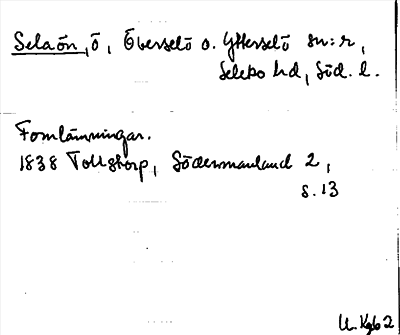 Selaön, ö, Överselö o. Ytterselö sn:r,
Selebo hd, Söd. l.
Fornlämningar.
1838 Tollstorp, Södermanland 2,
s. 13